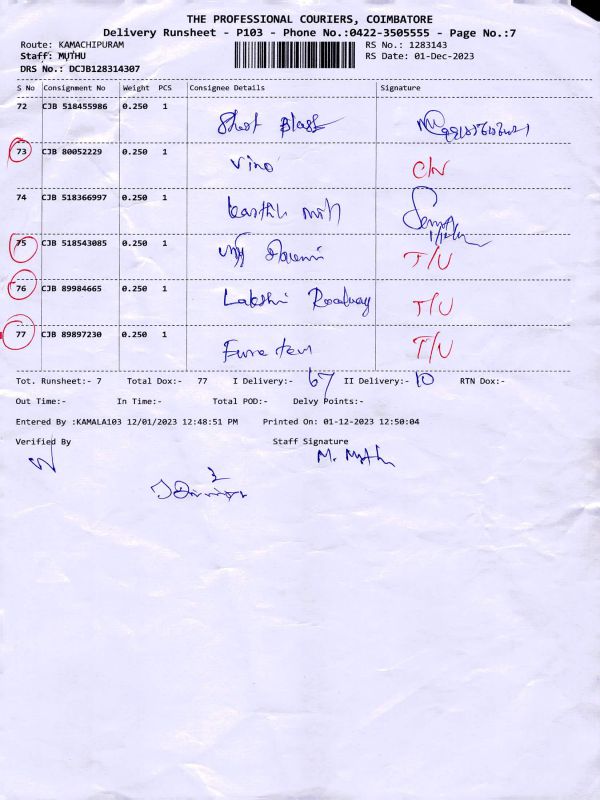 THE PROFESSIONAL COURIERS, COIMBATORE
Delivery Runsheet - P103 - Phone No.:0422-3505555 - Page No.:7
Route: KAMACHIPURAM RS No.: 1283143
Staff: MUTHU RS Date: 01-Dec-2023
DRS No.: DCJB128314307
S No Consignment No Weight PCS Consignee Details Signature
72 CJB 518455986 0.250 1 Shot Blast
73 CJB 80052229 0.250 1 Vino C/N
74 CJB 518366997 0.250 1
75 CJB 518543085 0.250 1 T/U
76 CJB 89984665 0.250 1 Lakshi Roadway T/U
77 CJB 89897230 0.250 1 T/U
Tot. Runsheet:- 7 Total Dox:- 77 I Delivery:- 67 II Delivery:- 10 RTN Dox:-
Out Time:- In Time:- Total POD:- Delvy Points:-
Entered By :KAMALA103 12/01/2023 12:48:51 PM Printed On: 01-12-2023 12:50:04
Verified By Staff Signature
M. Muthu